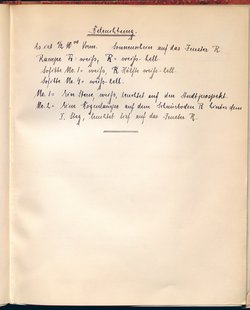 Beleuchtung.
Es ist 1/2 10 Vorm. Sonnenschein auf das Fenster R
Rampe R = weiß, R = weiss-hell
Sofitte No. 1 = weiß, R Hälfte weiß-hell.
Sofitte No. 4 = weiss-hell.
No. 1 = Eine weiß, leuchtet auf den Stadtprospekt.
No. 2 = Eine Bogenlampe auf dem R hinter dem
I. Steg, leuchtet tief auf das Fenster R.